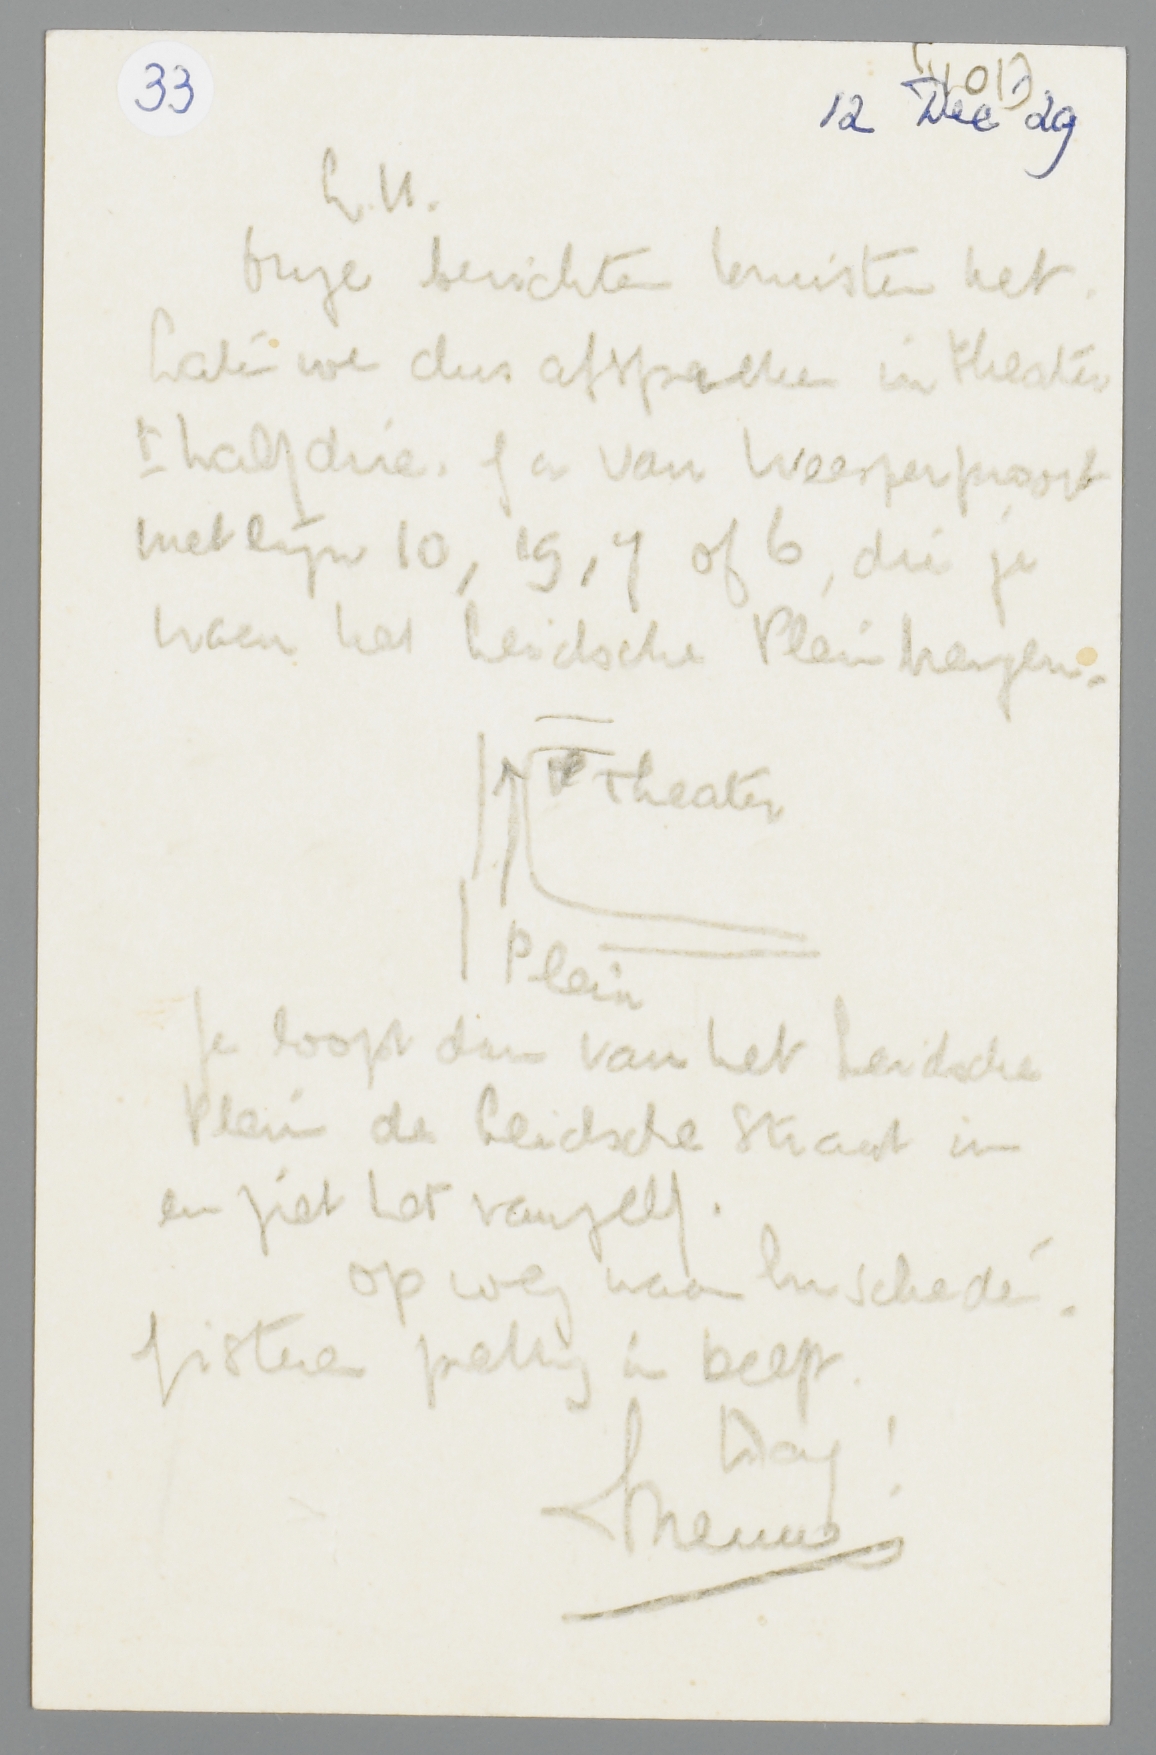 33
12 Dec 29
L.U.
Onze berichten kruisten het.
Laten we dus afspreken in theater
± half drie. Ga van Weesperpoort
met lijn 10, 19, 7 of 6, die je
naar het Leidsche Plein brengen.
Theater
Plein
Je loopt dan van het Leidsche
Plein de Leidsche Straat in
en ziet het vanzelf.
op weg naar Enschedé.
Gisteren prettig in
Dag!
Menno